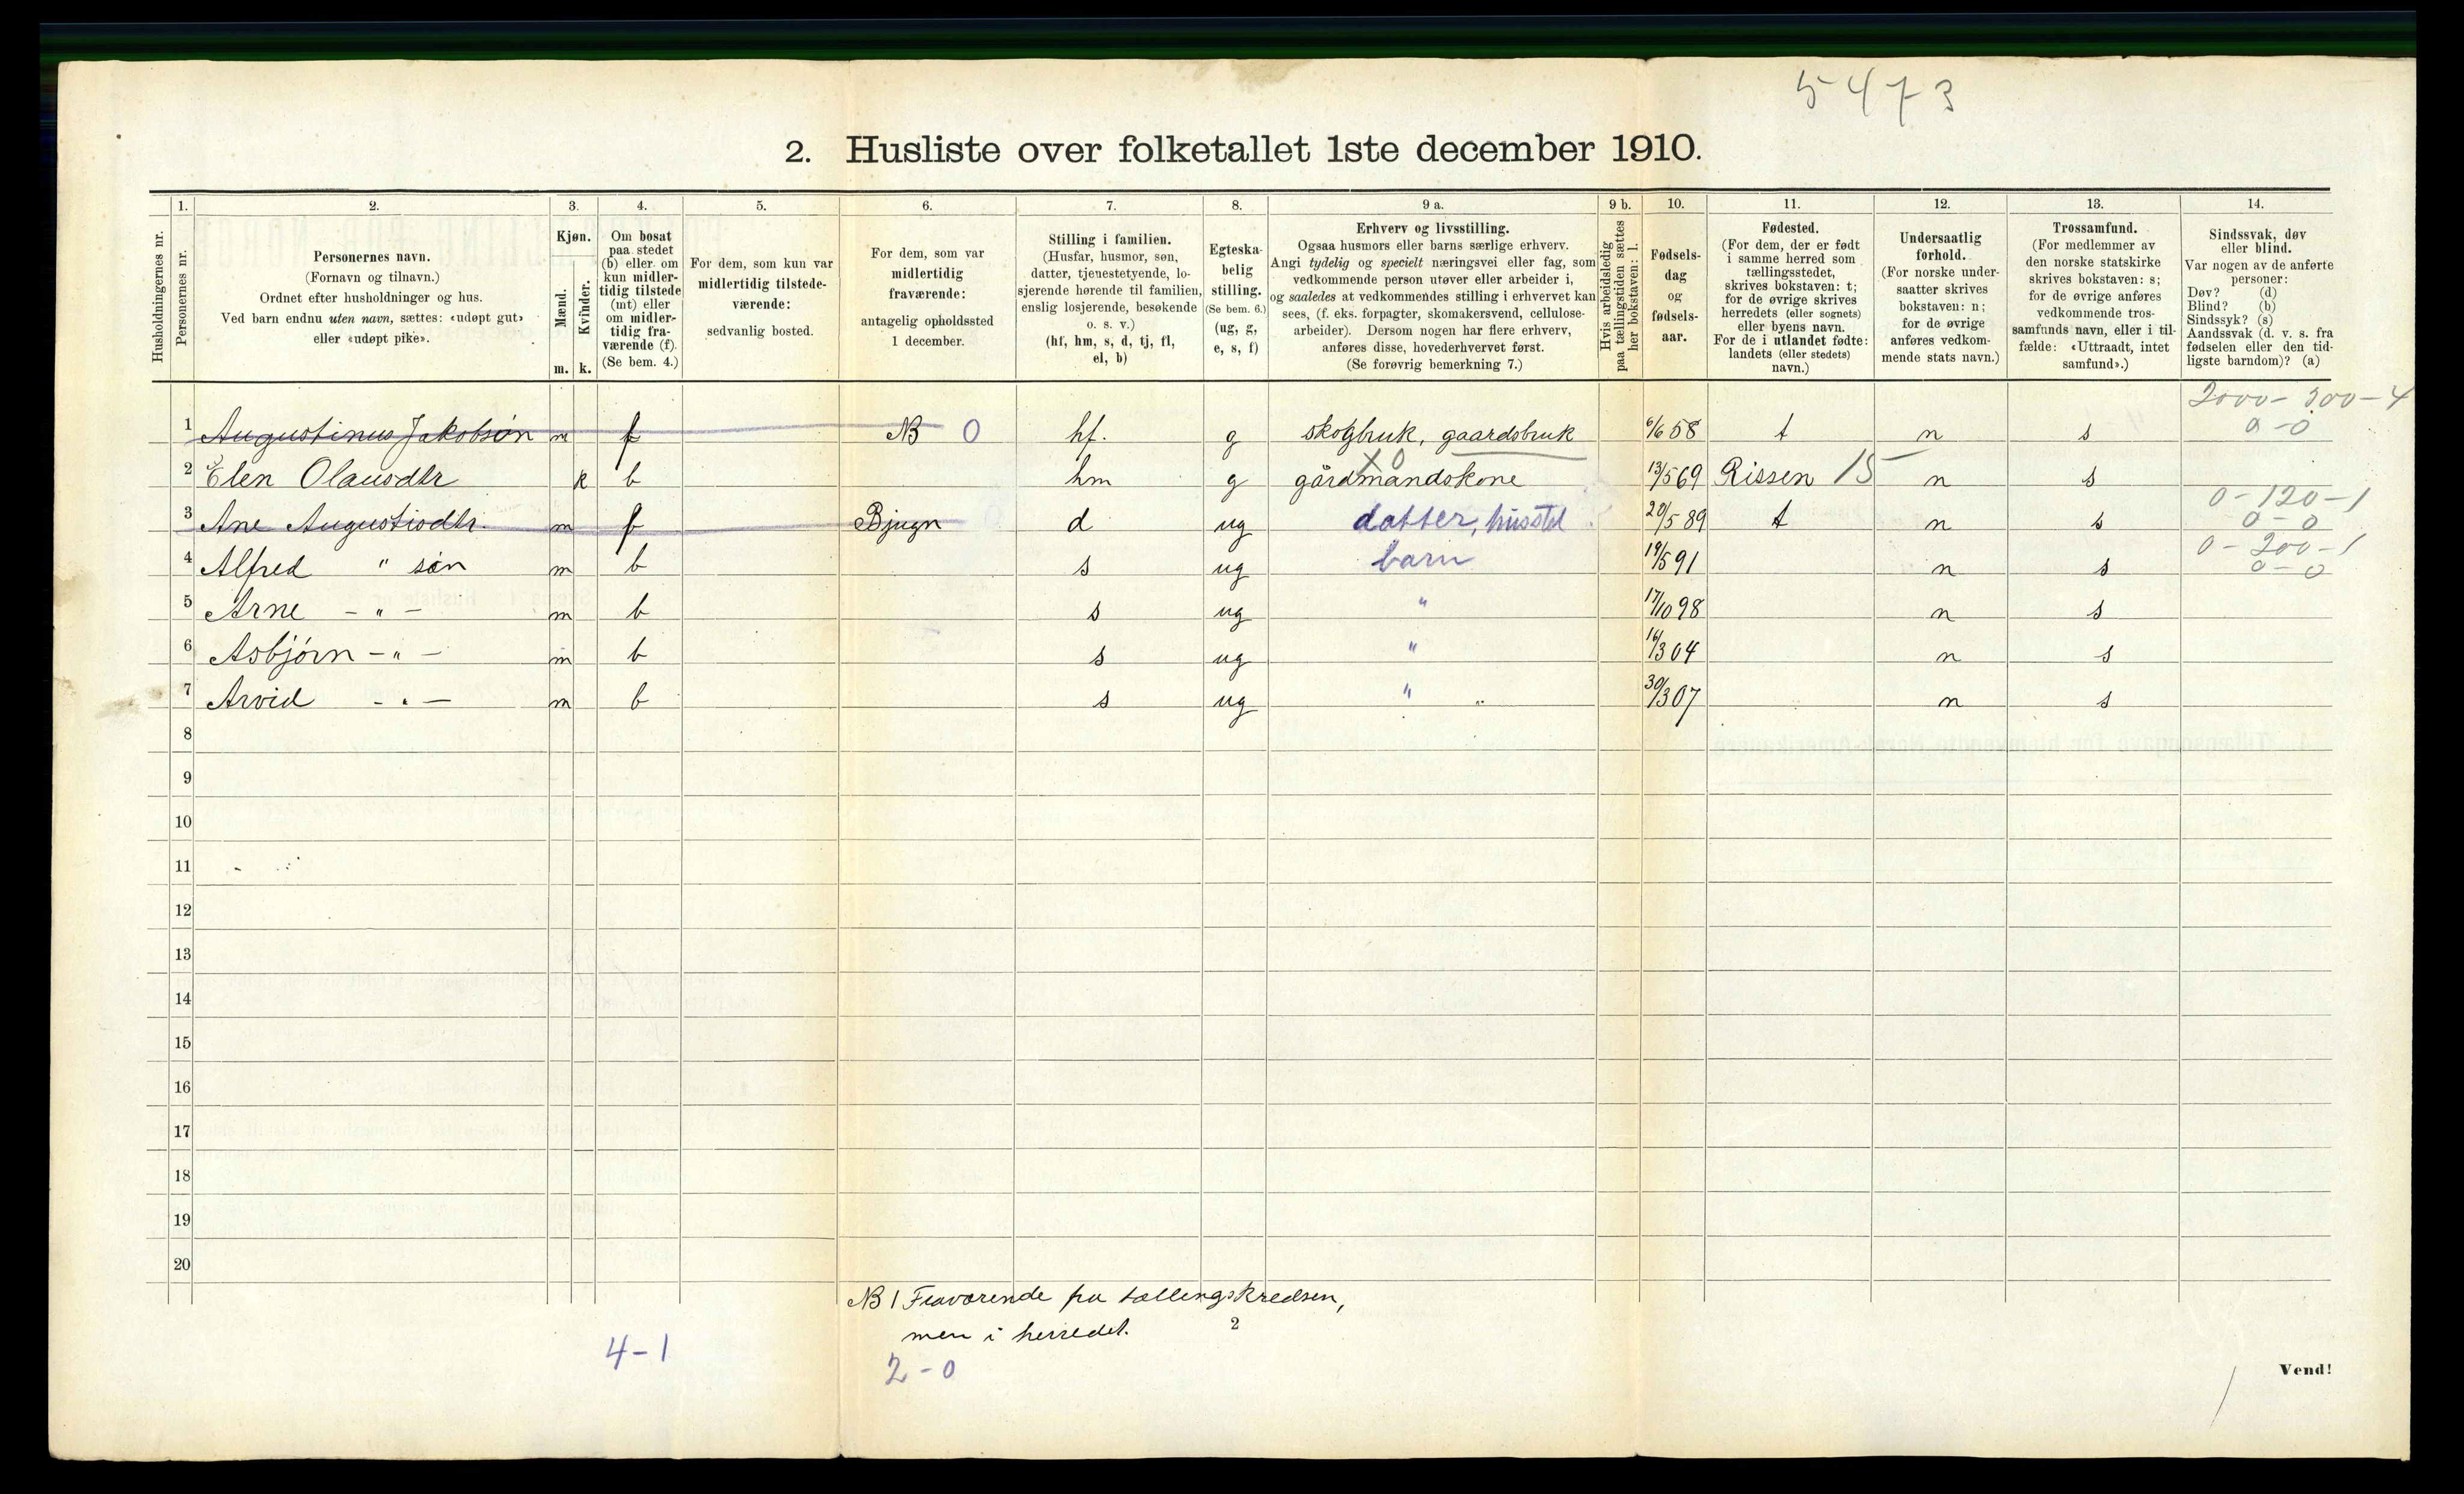 5473
2. Husliste over folketallet 1ste december 1910.
Husholdningernes nr.
1. Personernes nr.
2. Personernes navn.
(Fornavn og tilnavn.)
Ordnet efter husholdninger og hus.
Ved barn endnu uten navn, sættes: «udøpt gut»
eller «udøpt pike».
3. Kjøn.
Mænd. m.
Kvinder. k.
4. Om bosat
paa stedet
(b) eller om
kun midler-
tidig tilstede
(mt) eller
om midler-
tidig fra-
værende (f).
(Se bem. 4.)
5. For dem, som kun var
midlertidig tilstede-
værende:
sedvanlig bosted.
6. For dem, som var
midlertidig
fraværende:
antagelig opholdssted
1 december.
7. Stilling i familien.
(Husfar, husmor, søn,
datter, tjenestetyende, lo-
sjerende hørende til familien,
enslig losjerende, besøkende
o. s. v.)
(hf, hm, s, d, tj, fl,
el, b)
8. Egteska-
belig
stilling.
(Se bem. 6.)
(ug, g,
e, s, f)
9 a. Erhverv og livsstilling.
Ogsaa husmors eller barns særlige erhverv.
Angi tydelig og specielt næringsvei eller fag, som
vedkommende person utøver eller arbeider i,
og saaledes at vedkommendes stilling i erhvervet kan
sees, (f. eks. forpagter, skomakersvend, cellulose-
arbeider). Dersom nogen har flere erhverv,
anføres disse, hovederhvervet først.
(Se forøvrig bemerkning 7.)
9 b. Hvis arbeidsledig
paa tællingstiden sættes
her bokstaven: l.
10. Fødsels-
dag
og
fødsels-
aar.
11. Fødested.
(For dem, der er født
i samme herred som
tællingsstedet,
skrives bokstaven: t;
for de øvrige skrives
herredets (eller sognets)
eller byens navn.
For de i utlandet fødte:
landets (eller stedets)
navn.)
12. Undersaatlig
forhold.
(For norske under-
saatter skrives
bokstaven: n;
for de øvrige
anføres vedkom-
mende stats navn.)
13. Trossamfund.
(For medlemmer av
den norske statskirke
skrives bokstaven: s;
for de øvrige anføres
vedkommende tros-
samfunds navn, eller i til-
fælde: «Uttraadt, intet
samfund».)
14. Sindssvak, døv
eller blind.
Var nogen av de anførte
personer:
Døv? (d)
Blind? (b)
Sindssyk? (s)
Aandssvak (d. v. s. fra
fødselen eller den tid-
ligste barndom)? (a)
2000-300-4
1 Augustinus Jakobsøn m f NB 0 hf. g skogbruk, gaardsbruk 6/6 58 t n s 0-0
X 0
2 Elen Olausdtr k b hm g gårdmandskone 13/5 69 Rissen 15 n s
0-120-1
3 Ane Augustisdtr. m f Bjugn 0 d ug datter, husstel 20/5 89 t n s 0-0
0-200-1
4 Alfred " søn m b s ug barn 19/5 91 n s 0-0
5 Arne - " - m b s ug " 17/10 98 n s
6 Asbjørn - " - m b s ug " 16/3 04 n s
7 Arvid - " - m b s ug " 30/3 07 n s
8
9
10
11
12
13
14
15
16
17
18
19
20
NB | Fraværende fra tællingskredsen,
men i herredet.
2
4-1
2-0
Vend!